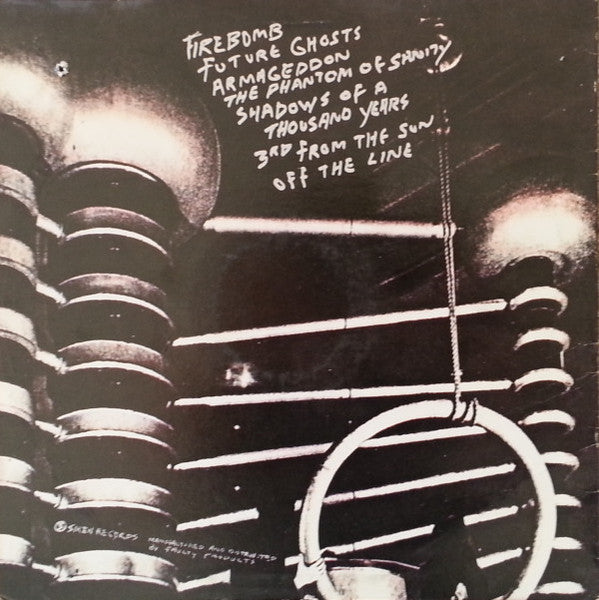 FIREBOMB
FUTURE GHOSTS
ARMAGEDDON
THE PHANTOM OF SANITY
SHADOWS OF A
THOUSAND YEARS
3RD FROM THE SUN
OFF THE LINE
RECORDS MANUFACTURED AND DISTRIBUTED
BY FAULTY PRODUCTS